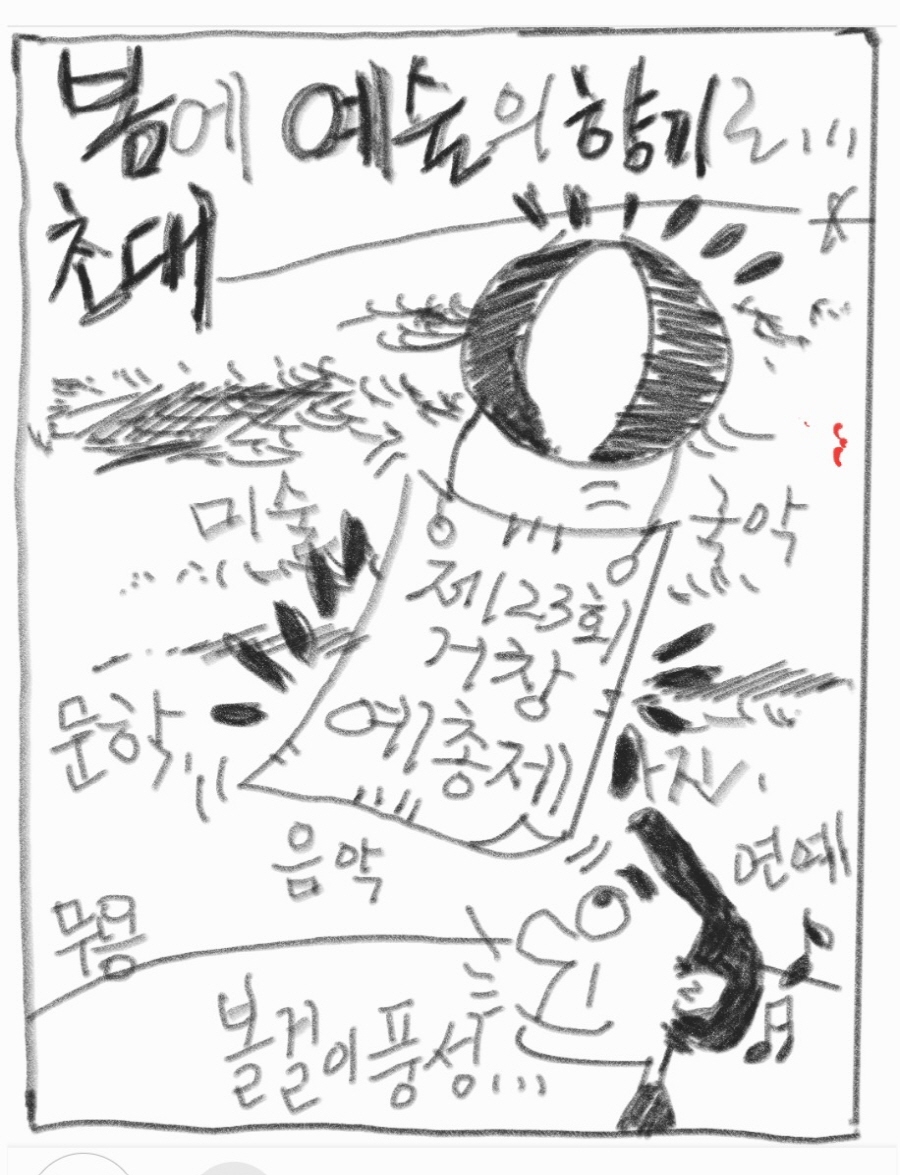 봄에 예술의 향기로...
초대
미술
국악
제23회
거창
예총제
문학
사진
음악
연예
무용
볼걸이 풍성...